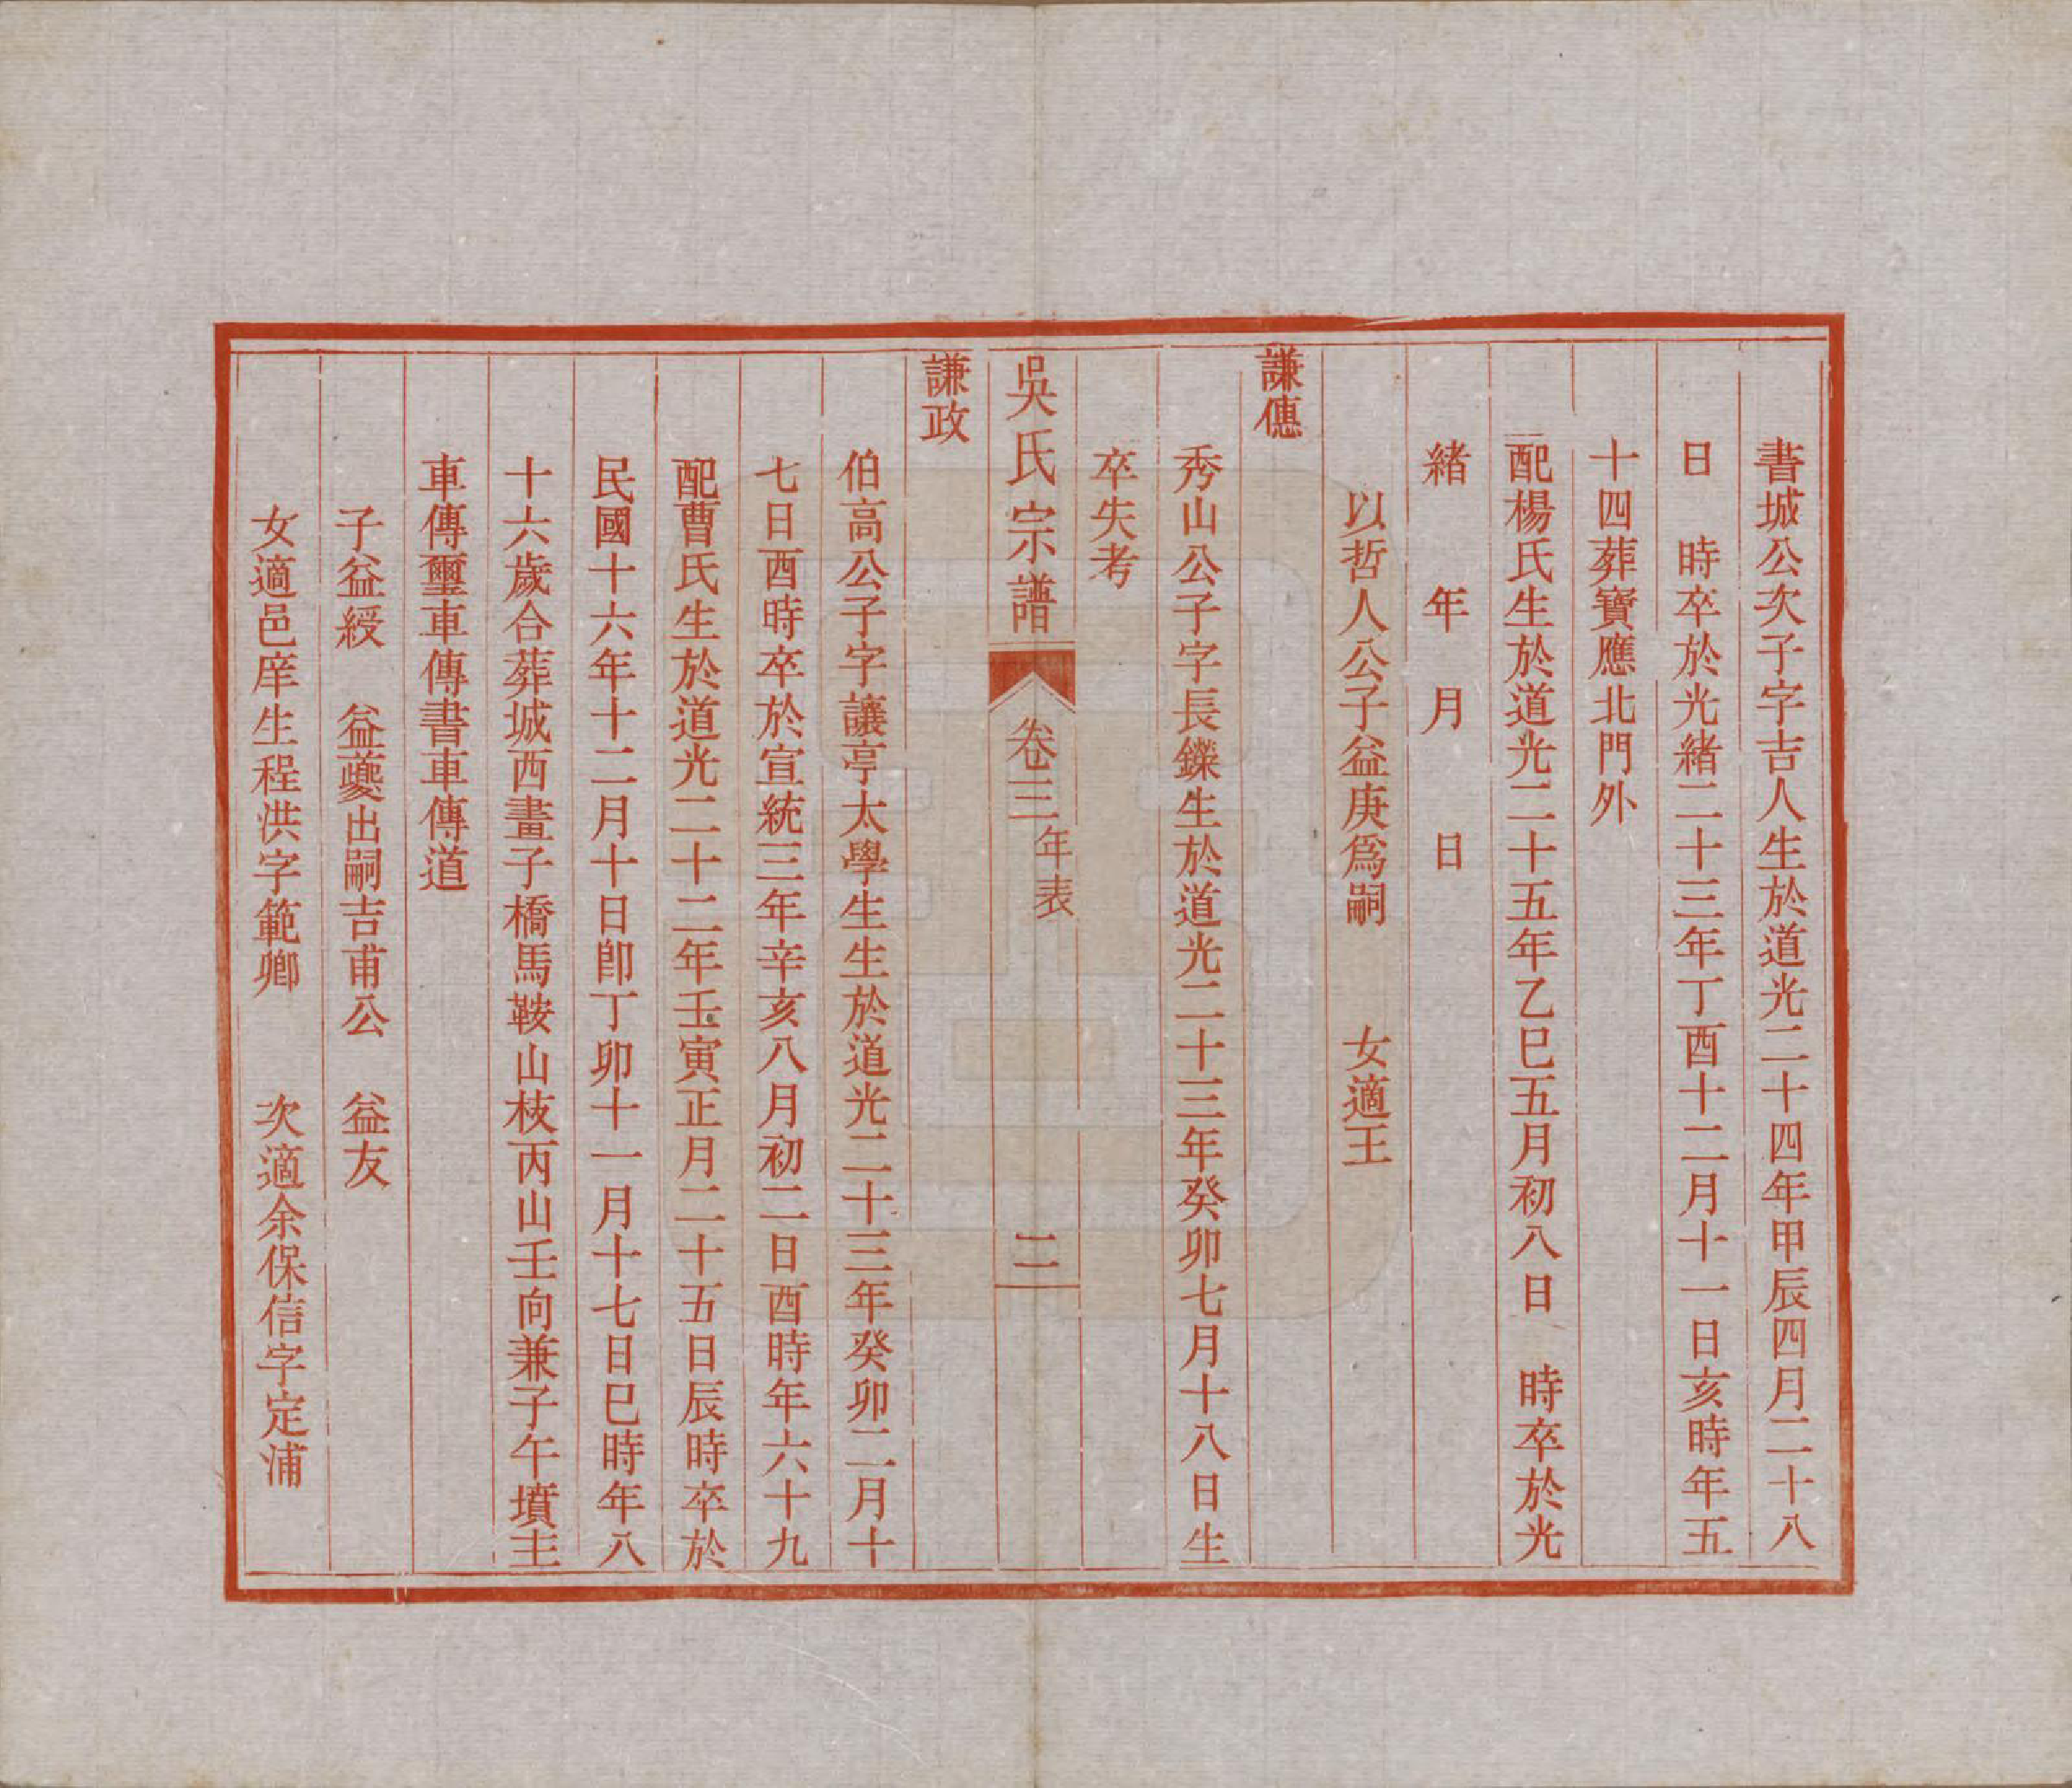 書城公次子字吉人生於道光二十四年甲辰四月二十八
日　時卒於光緒二十三年丁酉十二月十一日亥時年五
十四葬寶應北門外
配楊氏生於道光二十五年乙巳五月初八日　時卒於光
緒　年　月　日
以哲人公子益庚爲嗣　女適王
謙德
秀山公子字長鑠生於道光二十三年癸卯七月十八日生
卒失考
吳氏宗譜　卷三　年表　二
謙政
伯高公子字讓亭太學生生於道光二十三年癸卯二月十
七日酉時卒於宣統三年辛亥八月初二日酉時年六十九
配曹氏生於道光二十二年壬寅正月二十五日辰時卒於
民國十六年十二月十日卽丁卯十一月十七日巳時年八
十六歲合葬城西畫子橋馬鞍山枝丙山壬向兼子午墳主
車傳璽車傳書車傳道
子益綬　益夔出嗣吉甫公　益友
女適邑庠生程洪字範卿　次適余保信字定浦